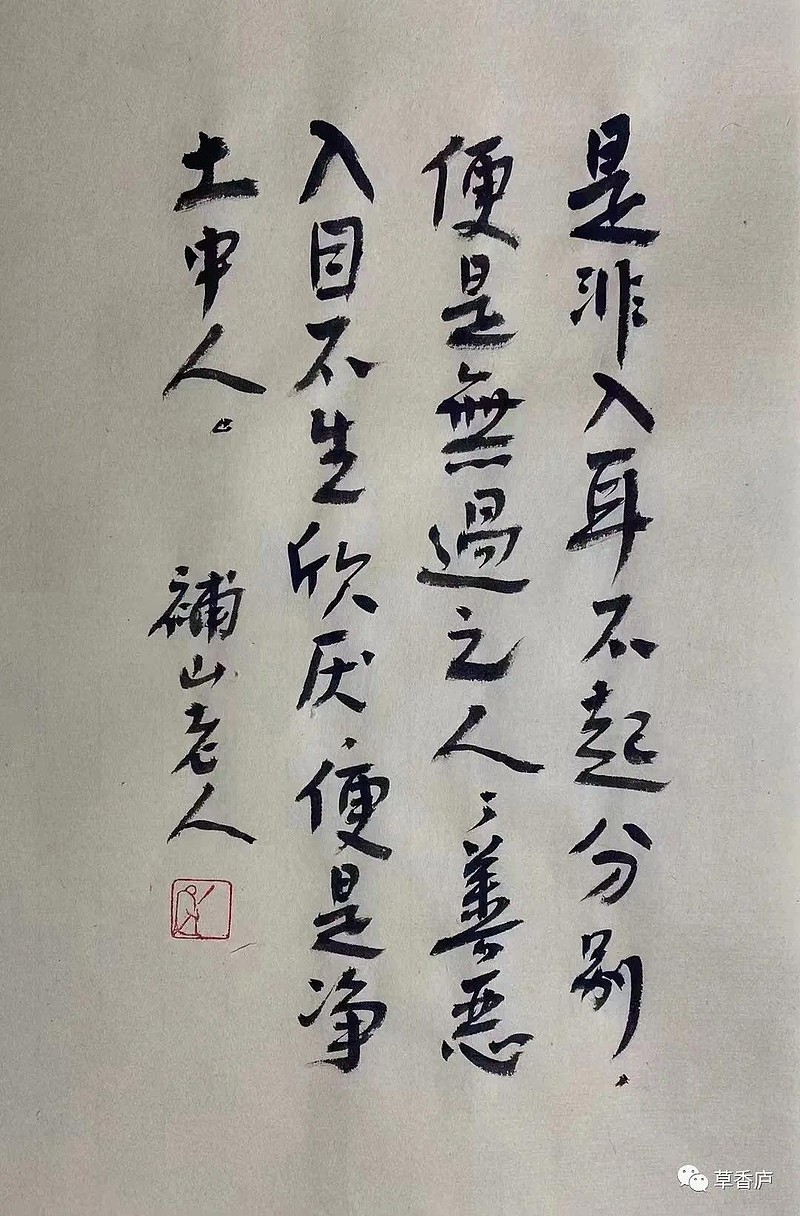 是非入耳不起分别，
便是無過之人；善惡
入目不生欣厌，便是净
土中人。
補山老人
草香庐